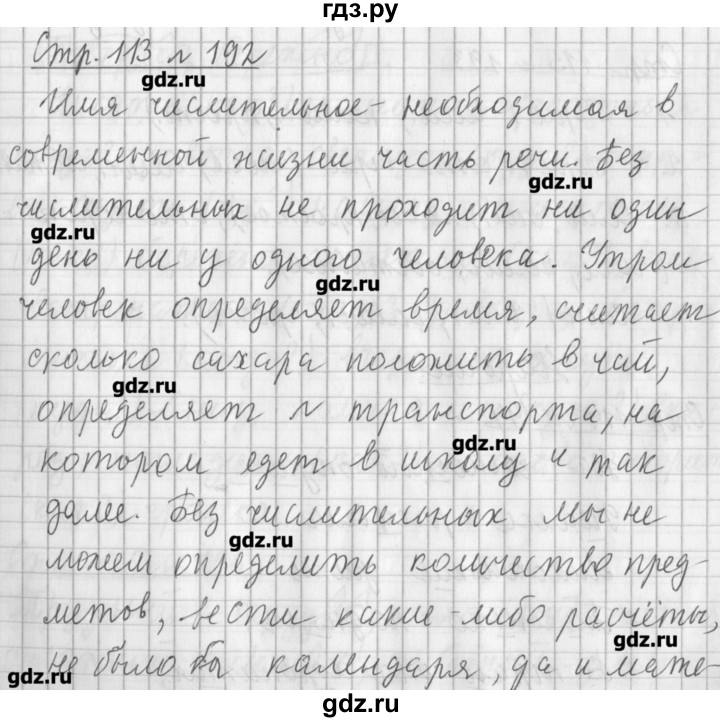 гдз.ру
Стр. 113 № 192
gdz.ru
Имя числительное - необходимая в
современной жизни часть речи. Без
gdz.ru
числительных не проходит ни один
gdz.ru
день ни у одного человека. Утром
gdz.ru
человек определяет время, считает
сколько сахара положить в чай,
gdz.ru
определяет № транспорта, на
gdz.ru
котором едет в школу и так
далее. Без числительных мы не
gdz.ru
можем определить количество пред-
метов, вести какие-либо расчёты,
gdz.ru
не было бы календаря, да и мате-
gdz.ru
gdz.ru